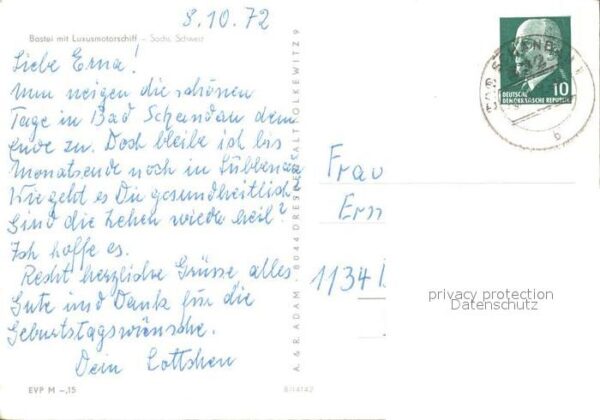 3.10.72
Bastei mit Luxusmotorschiff – Sächs. Schweiz
Liebe Erna!
Nun neigen die schönen
Tage in Bad Schandau dem
Ende zu. Doch bleibe ich bis
Monatsende noch in Lübbenau
Wie geht es Dir gesundheitlich?
Sind die Zehen wieder heil?
Ich hoffe es.
Recht herzliche Grüsse alles
Gute und Dank für die
Geburtstagswünsche.
Dein Lottchen
EVP M –,15
A. & R. ADAM · 8044 DRESDEN ALTTOLKEWITZ 9
10
DEUTSCHE
DEMOKRATISCHE REPUBLIK
b
Frau
Ern
1134
privacy protection
Datenschutz